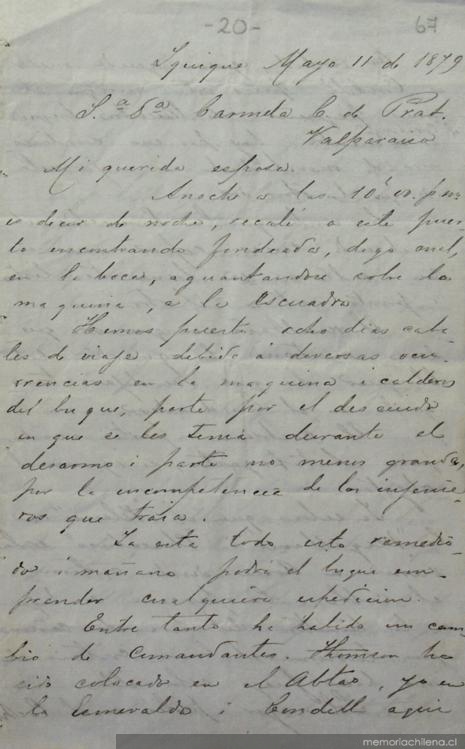 -20-
67
Iquique Mayo 11 de 1879
S.ª D.ª Carmela C. de Prat.
Valparaiso
Mi querida esposa.
Anoche a las 10
decir de noche, recalé a este puer-
to encontrando fondeada, digo mal,
en la boca, aguantandose sobre la
maquina, a la Escuadra
Hemos puesto ocho dias caba-
les de viaje debido á diversas ocu-
rrencias en la maquina i calderos
del buque, parte por el descuido
en que se les tenia durante el
desarmo i parte no menos grande,
por la incompetencia de los injenie-
ros que traia.
Ya esta todo esto remedia-
do i mañana podrá el buque em-
prender cualquiera espedicion.
Entre tanto ha habido un cam-
bio de Comandantes. Thomson ha
sido colocado en el Abtao, yo en
la Esmeralda i Condell aqui
memoriachilena.cl